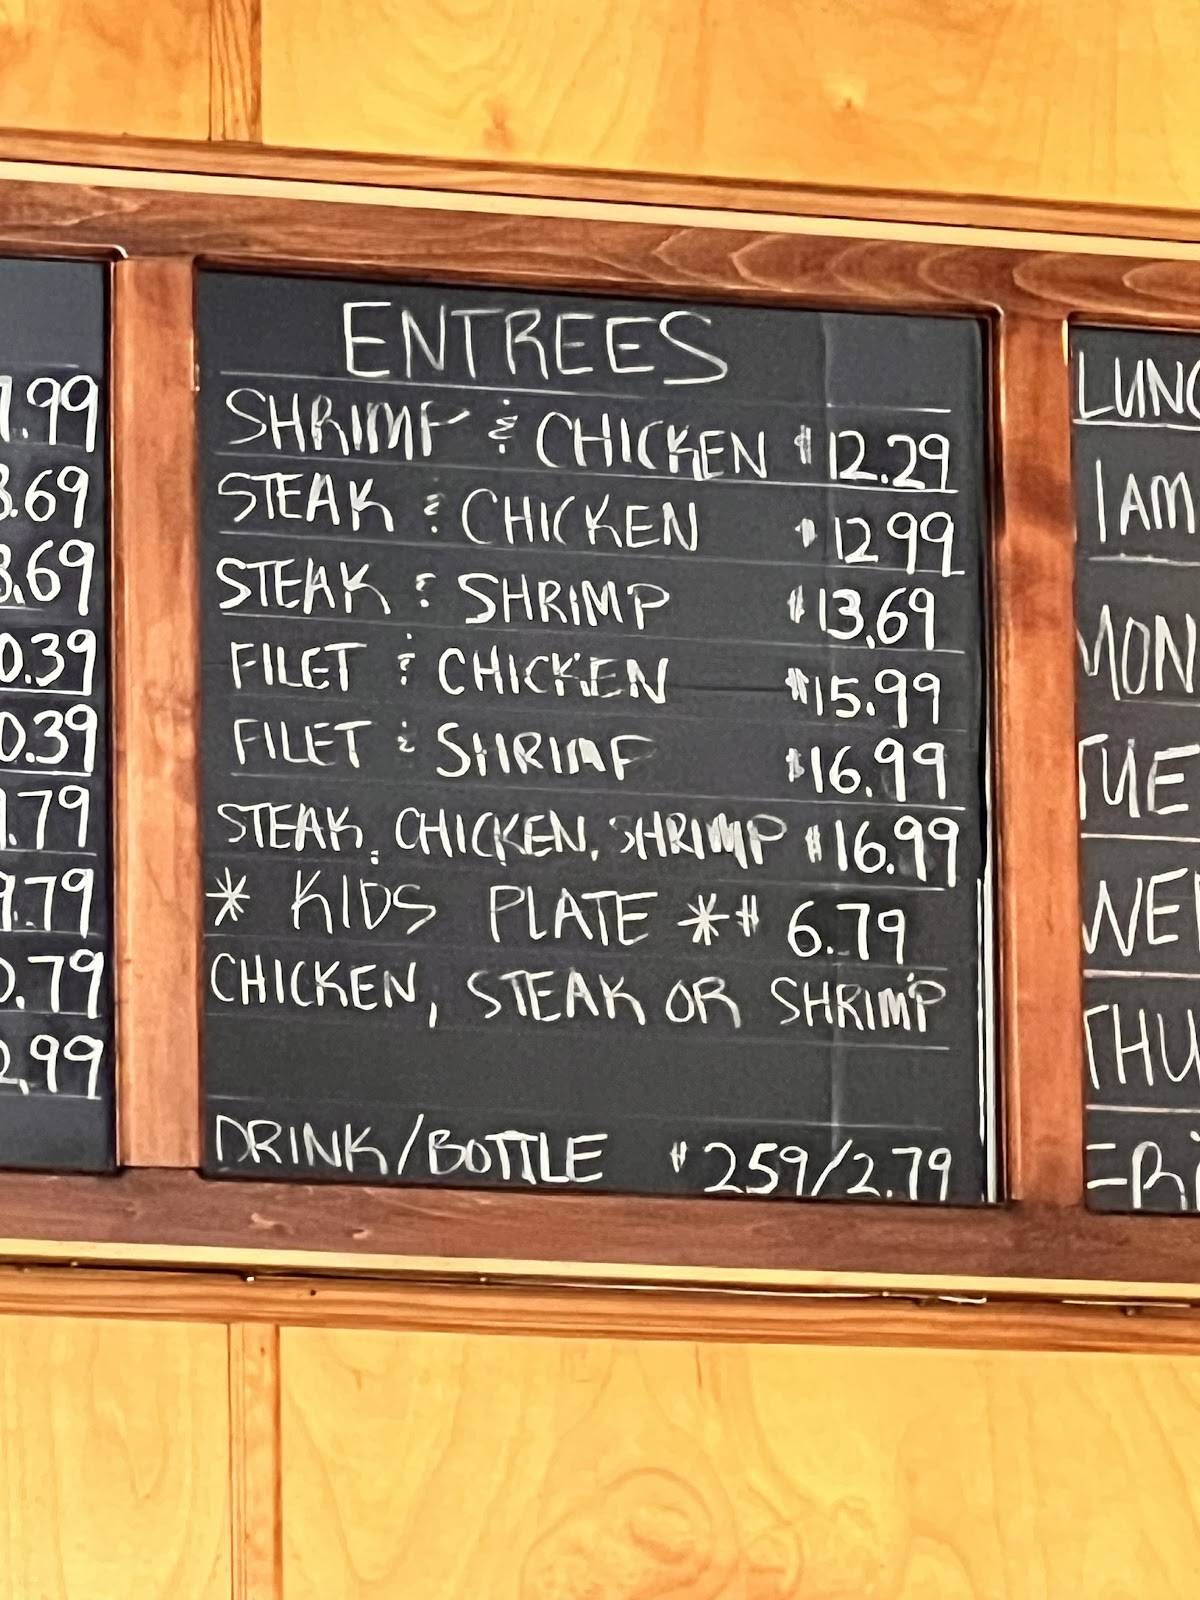 ENTREES
SHRIMP & CHICKEN $12.29
STEAK & CHICKEN $12 99
STEAK & SHRIMP $13.69
FILET & CHICKEN $15.99
FILET & SHRIMP $16.99
STEAK, CHICKEN, SHRIMP $16.99
* KIDS PLATE * $6.79
CHICKEN, STEAK OR SHRIMP
DRINK/BOTTLE $259/2.79
.99
.69
.69
0.39
0.39
.79
9.79
0.79
2.99
LUNC
1 AM
MON
TUE
WE
THU